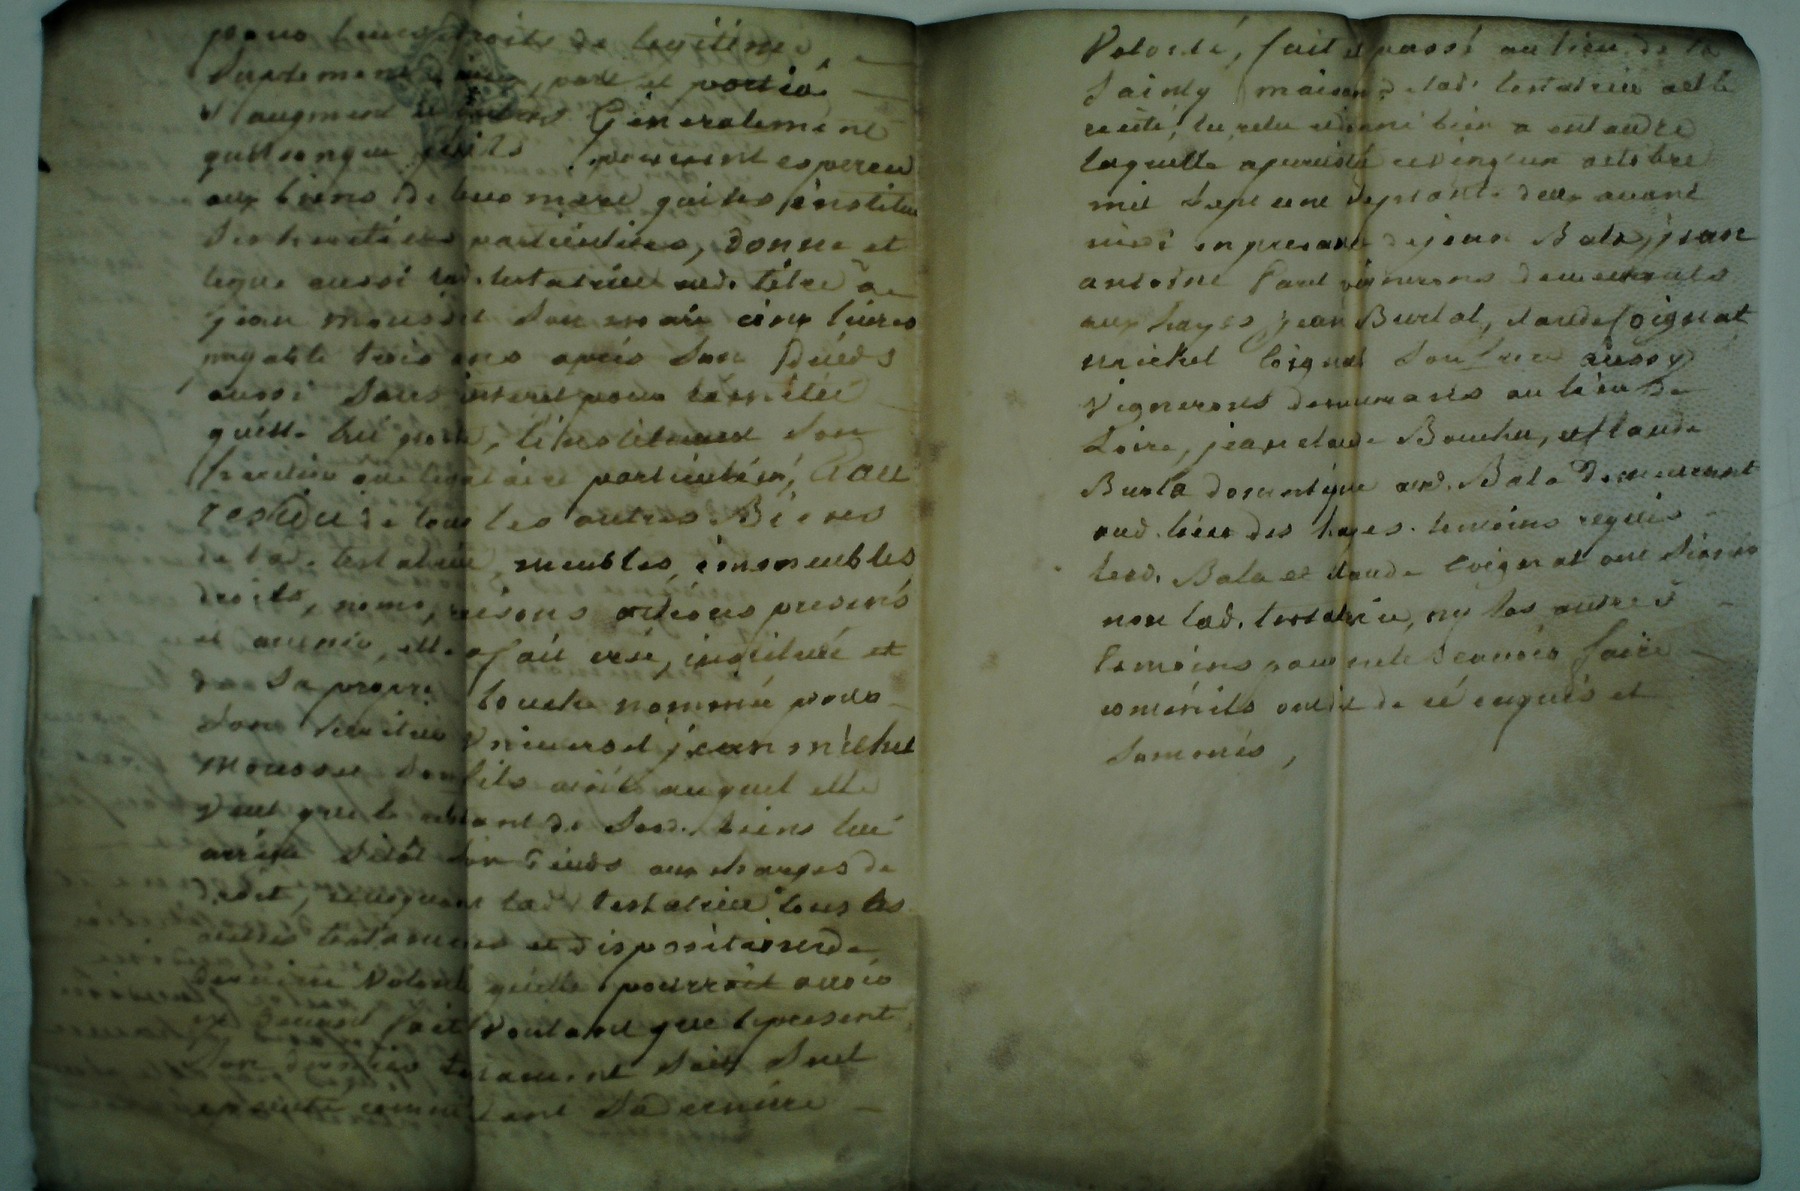 pour leurs droits de legitime
Suplement icelle, part et portion
d'augment et autres Generalement
quelconque quils pouroient esperer
aux biens de leur mere qui les institue
Ses heritiers particuliers, donne et
legue aussi lad. testatrice aud. titre à
jean mousset Son mari cinq livres
payable trois ans apres Son deceds
aussi Sans interet pour lamitié
quelle lui porte, l'instituant Son
heritier particulier, Et au
residu de tous les autres Biens
de lad. testatrice meubles, immeubles
droits, noms, raisons actions presens
et avenir, elle a fait créé, institué et
de Sa propre bouche nommé pour
Son heritier Universel jean michel
mousset Son fils ainé auquel elle
veut que le restant de Sesd. biens lui
arrive Sitôt Son deceds aux charges de
droit, revoquant lad. testatrice tous les
autres testamens et dispositions de
derniere Volonté quelle pourroit avoir
cy devant fait Voulant que le present
Son dernier testament Soit Seul
executé comme etant Sa derniere
Volonté, fait et passé au lieu de la
maison de lad. testatrice a elle
recité, lu, relu et donné bien a entendre
laquelle a persisté ce vingt un octobre
mil Sept cent Septante deux avant
midi en presance de jean Bala, jean
antoine vignerons demeurants
aux hayes jean Burlat, claude Coignat
michel Coignat Son frere aussy
Vignerons demeurants au lieu de
Loire, jean claude Bouchu, et claude
Burla domestique aud. Bala demeurant
aud. lieu des hayes. temoins requis
lesd. Bala et claude Coignat ont Signés
non lad. testatrice, ny les autres
temoins pour ne le Scavoir faire
comm'ils ont dit de ce enquis et
Sommés,